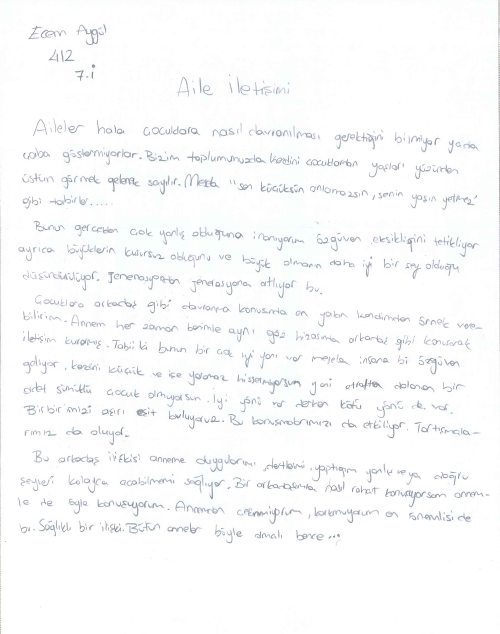 Ecem Aygül
412
7.İ
Aile İletişimi
Aileler hala çocuklara nasıl davranılması gerektiğini bilmiyor yada
çaba göstermiyorlar. Bizim toplumumuzda kendini çocuklardan yaşları yüzünden
üstün görmek gelenek sayılır. Mesela "sen küçüksün anlamazsın, senin yaşın yetmez"
gibi tabirler.....
Bunun gerçekten çok yanlış olduğuna inanıyorum özgüven eksikliğini tetikliyor
ayrıca büyüklerin kusursuz olduğunu ve büyük olmanın daha iyi bir şey olduğu
düşündürülüyor. Jenerasyondan jenerasyona atlıyor bu.
Çocuklara arkadaş gibi davranma konusunda en yakın kendimden örnek vere-
bilirim. Annem her zaman benimle aynı göz hizasında arkadaş gibi konuşarak
iletişim kurarmış. Tabii ki bunun bir çok iyi yanı var mesela insana bi özgüven
geliyor, kendini küçük ve işe yaramaz hissetmiyorsun yani etrafta dolanan bir
adet sümüklü çocuk olmuyorsun. İyi yönü var derken kötü yönü de var.
Birbirimizi aşırı eşit buluyoruz. Bu konuşmalarımızı da etkiliyor. Tartışmala-
rımız da oluyor.
Bu arkadaş ilişkisi anneme duygularımı, dertlerimi, yaptığım yanlış veya doğru
şeyleri kolayca açabilmemi sağlıyor. Bir arkadaşımla nasıl rahat konuşuyorsam annem-
le de öyle konuşuyorum. Annemden çekinmiyorum, korkmuyorum en önemlisi de
bu. Sağlıklı bir ilişki. Bütün anneler böyle olmalı bence...